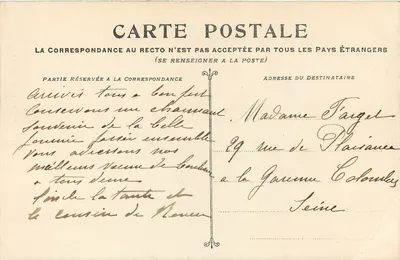 CARTE POSTALE
LA CORRESPONDANCE AU RECTO N'EST PAS ACCEPTÉE PAR TOUS LES PAYS ÉTRANGERS
(SE RENSEIGNER A LA POSTE)
PARTIE RÉSERVÉE A LA CORRESPONDANCE
arrivés tous a bon port
conservons un charmant
souvenir de la belle
journée passée ensemble
vous adressons nos
meilleurs
a tous deux
la tante et
le cousin de
ADRESSE DU DESTINATAIRE
Madame Farget
29 rue de Plaisance
a la Garenne Colombes
Seine